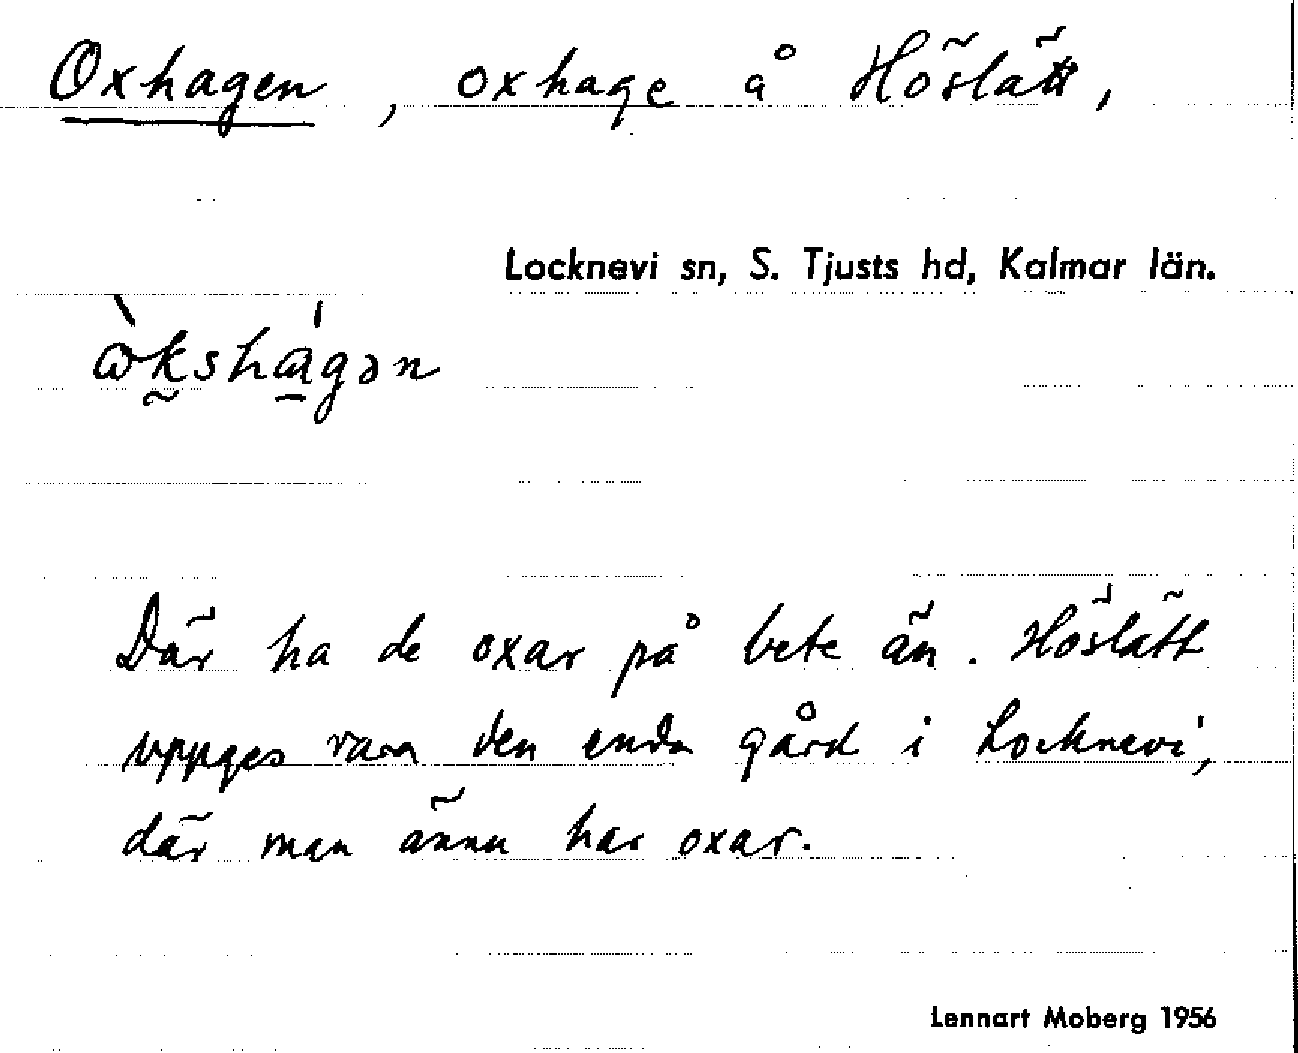 Oxhagen, oxhage å Höslätt,
Locknevi sn, S. Tjusts hd, Kalmar län.
ὼkshágən
Där ha de oxar på bete än. Höslätt
uppges vara den enda gård i Locknevi,
där man ännu har oxar.
Lennart Moberg 1956